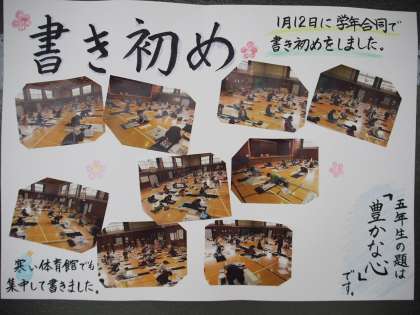 書き初め
1月12日に学年合同で
書き初めをしました。
五年生の題は
「豊かな心」
です。
寒い体育館でも
集中して書きました。